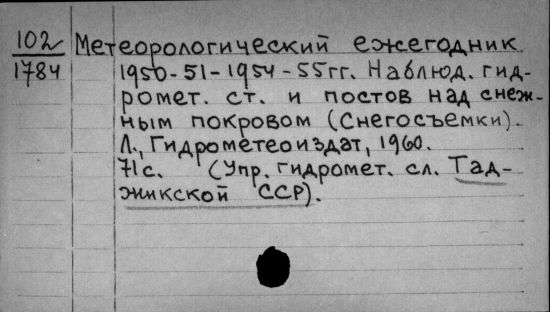 102 Метеорологический ежегодник
1784 1950-51-1954-55гг. Наблюд. гид-
ромет. ст. и постов над снеж-
ным покровом (Снегосъемки).
Л., Гидрометеоиздат, 1960.
71с. (Упр. гидромет. сл. Тад-
жикской ССР).